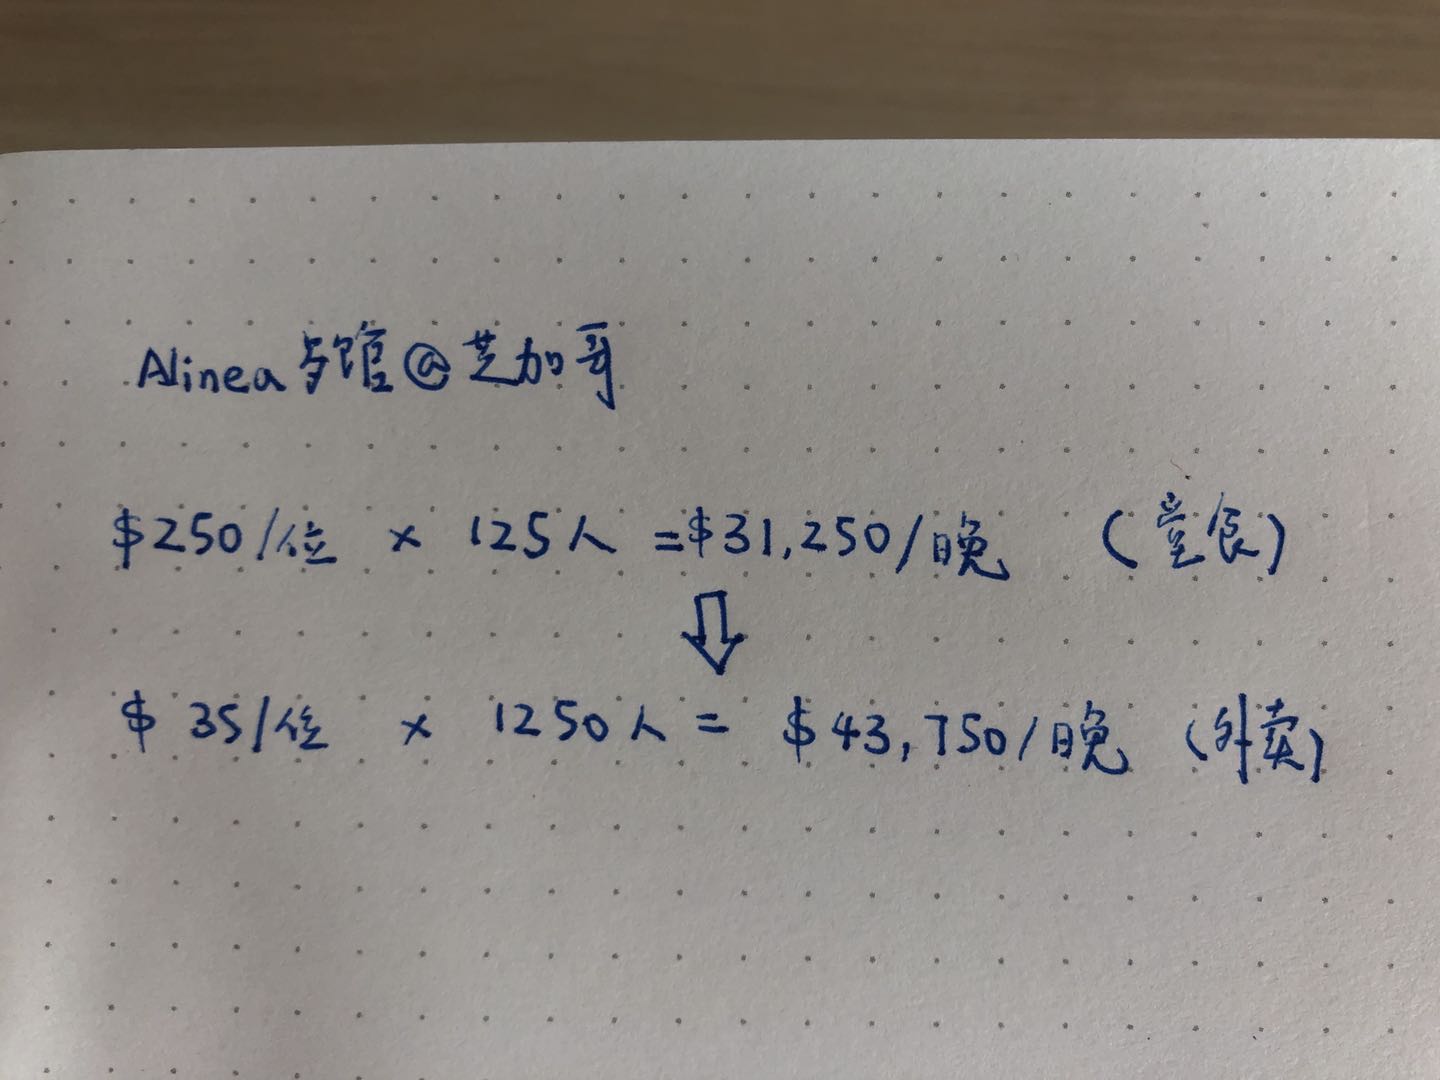 Alinea 歺馆@芝加哥
$250/位 × 125人 =$31,250/晚 (堂食)
$ 35/位 × 1250人 = $43,750/晚 (外卖)